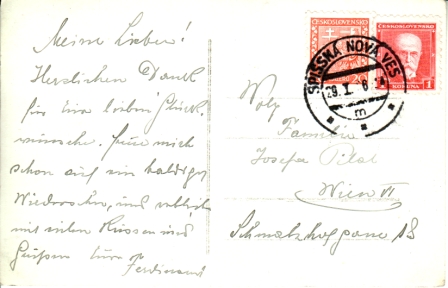 Meine Lieben!
Herzlichen Dank
für Eure lieben Glück-
wünsche. freue mich
schon auf ein baldiges
Wiedersehn, und verbleibe
mit vielen Küssen und
Grüßen Euer
Ferdinand
ČESKOSLOVENSKO
20
ČESKOSLOVENSKO
1 KORUNA 1
SPIŠSKÁ NOVÁ VES
29. I.
m
Familie
Josefa
Wien VI
Schmalzhofgasse 18